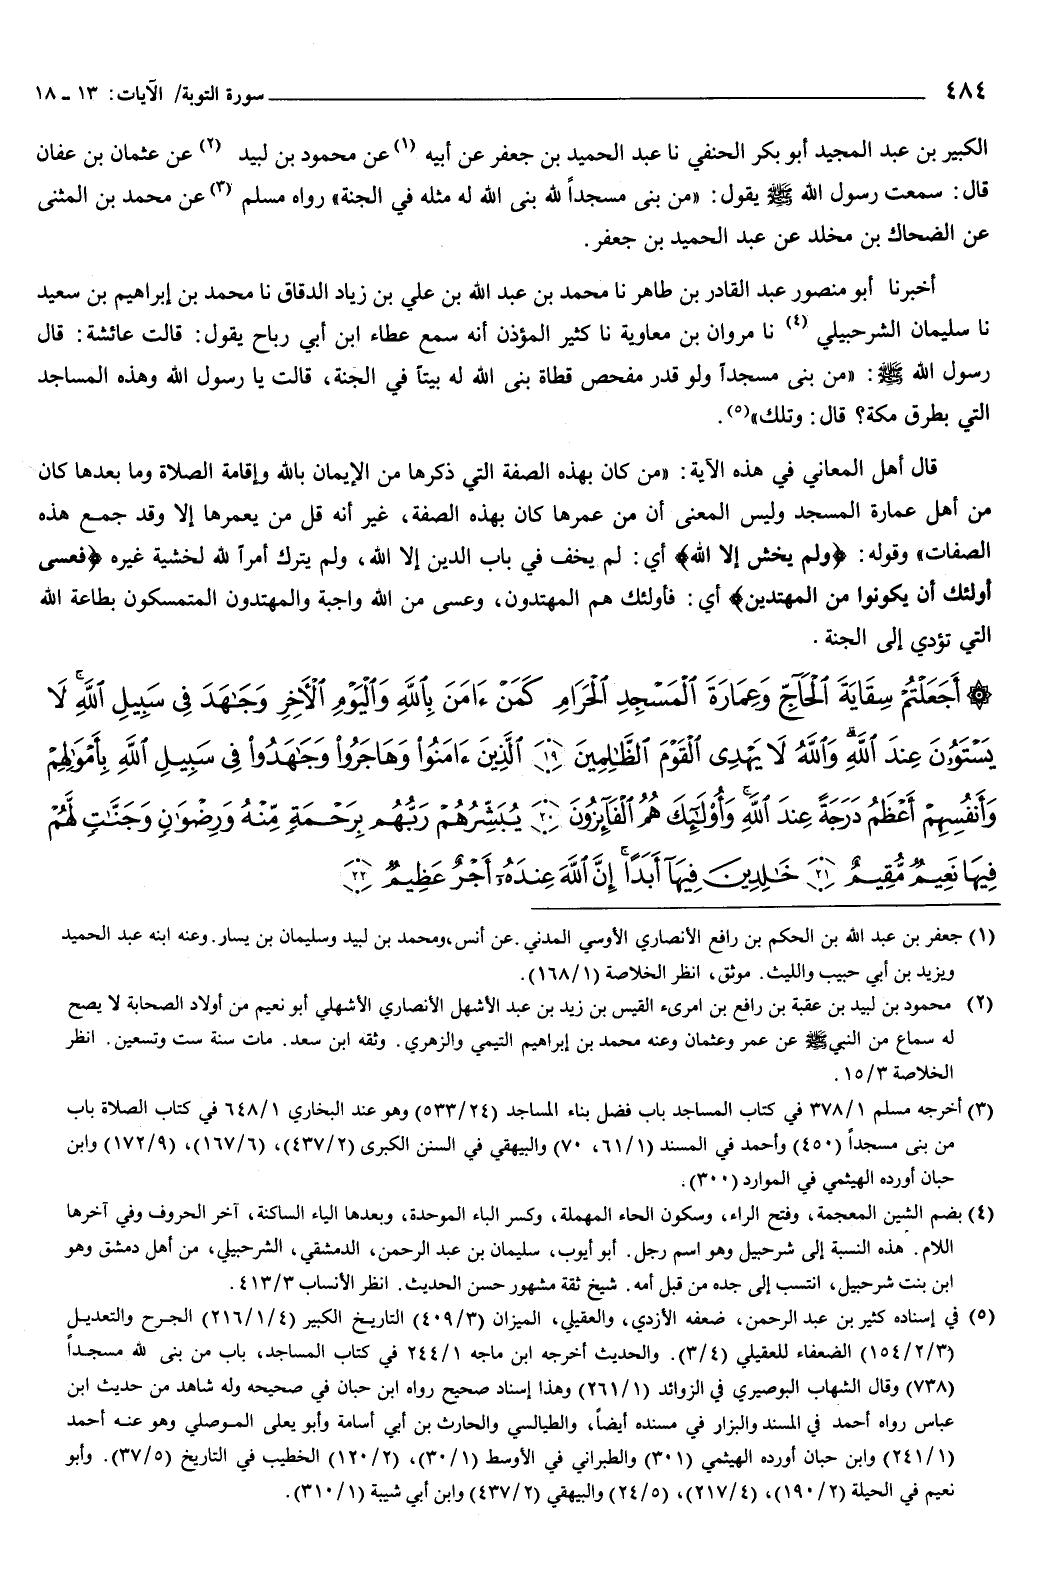 ٤٨٤ سورة التوبة/ الآيات: ١٣ ـ ١٨
الكبير بن عبد المجيد أبو بكر الحنفي نا عبد الحميد بن جعفر عن أبيه (١) عن محمود بن لبيد (٢) عن عثمان بن عفان
قال: سمعت رسول الله ﷺ يقول: «من بنى مسجداً لله بنى الله له مثله في الجنة» رواه مسلم (٣) عن محمد بن المثنى
عن الضحاك بن مخلد عن عبد الحميد بن جعفر.
أخبرنا أبو منصور عبد القادر بن طاهر نا محمد بن عبد الله بن علي بن زياد الدقاق نا محمد بن إبراهيم بن سعيد
نا سليمان الشرحبيلي (٤) نا مروان بن معاوية نا كثير المؤذن أنه سمع عطاء ابن أبي رباح يقول: قالت عائشة: قال
رسول الله ﷺ: «من بنى مسجداً ولو قدر مفحص قطاة بنى الله له بيتاً في الجنة، قالت يا رسول الله وهذه المساجد
التي بطرق مكة؟ قال: وتلك»(٥).
قال أهل المعاني في هذه الآية: «من كان بهذه الصفة التي ذكرها من الإيمان بالله وإقامة الصلاة وما بعدها كان
من أهل عمارة المسجد وليس المعنى أن من عمرها كان بهذه الصفة، غير أنه قل من يعمرها إلا وقد جمع هذه
الصفات» وقوله: ﴿ولم يخش إلا الله﴾ أي: لم يخف في باب الدين إلا الله، ولم يترك أمراً لله لخشية غيره ﴿فعسى
أولئك أن يكونوا من المهتدين﴾ أي: فأولئك هم المهتدون، وعسى من الله واجبة والمهتدون المتمسكون بطاعة الله
التي تؤدي إلى الجنة.
۞ أَجَعَلْتُمْ سِقَايَةَ الْحَآجِّ وَعِمَارَةَ الْمَسْجِدِ الْحَرَامِ كَمَنْ ءَامَنَ بِاللَّهِ وَالْيَوْمِ الْأَخِرِ وَجَٰهَدَ فِى سَبِيلِ اللَّهِ ۚ لَا
يَسْتَوُۥنَ عِندَ اللَّهِ ۗ وَاللَّهُ لَا يَهْدِى الْقَوْمَ الظَّٰلِمِينَ ﴿١٩﴾ الَّذِينَ ءَامَنُوا۟ وَهَاجَرُوا۟ وَجَٰهَدُوا۟ فِى سَبِيلِ اللَّهِ بِأَمْوَٰلِهِمْ
وَأَنفُسِهِمْ أَعْظَمُ دَرَجَةً عِندَ اللَّهِ ۚ وَأُو۟لَٰٓئِكَ هُمُ الْفَآئِزُونَ ﴿٢٠﴾ يُبَشِّرُهُمْ رَبُّهُم بِرَحْمَةٍ مِّنْهُ وَرِضْوَٰنٍ وَجَنَّٰتٍ لَّهُمْ
فِيهَا نَعِيمٌ مُّقِيمٌ ﴿٢١﴾ خَٰلِدِينَ فِيهَآ أَبَدًا ۚ إِنَّ اللَّهَ عِندَهُۥٓ أَجْرٌ عَظِيمٌ ﴿٢٢﴾
(١) جعفر بن عبد الله بن الحكم بن رافع الأنصاري الأوسي المدني. عن أنس، ومحمد بن لبيد وسليمان بن يسار. وعنه ابنه عبد الحميد
ويزيد بن أبي حبيب والليث. موثق، انظر الخلاصة (١/ ١٦٨).
(٢) محمود بن لبيد بن عقبة بن رافع بن امرىء القيس بن زيد بن عبد الأشهل الأنصاري الأشهلي أبو نعيم من أولاد الصحابة لا يصح
له سماع من النبي ﷺ عن عمر وعثمان وعنه محمد بن إبراهيم التيمي والزهري. وثقه ابن سعد. مات سنة ست وتسعين. انظر
الخلاصة ٣/ ١٥.
(٣) أخرجه مسلم ١/ ٣٧٨ في كتاب المساجد باب فضل بناء المساجد (٢٤/ ٥٣٣) وهو عند البخاري ١/ ٦٤٨ في كتاب الصلاة باب
من بنى مسجداً (٤٥٠) وأحمد في المسند (١/ ٦١، ٧٠) والبيهقي في السنن الكبرى (٢/ ٤٣٧)، (٦/ ١٦٧)، (٩/ ١٧٢) وابن
حبان أورده الهيثمي في الموارد (٣٠٠).
(٤) بضم الشين المعجمة، وفتح الراء، وسكون الحاء المهملة، وكسر الباء الموحدة، وبعدها الياء الساكنة، آخر الحروف وفي آخرها
اللام. هذه النسبة إلى شرحبيل وهو اسم رجل. أبو أيوب، سليمان بن عبد الرحمن، الدمشقي، الشرحبيلي، من أهل دمشق وهو
ابن بنت شرحبيل، انتسب إلى جده من قبل أمه. شيخ ثقة مشهور حسن الحديث. انظر الأنساب ٣/ ٤١٣.
(٥) في إسناده كثير بن عبد الرحمن، ضعفه الأزدي، والعقيلي، الميزان (٣/ ٤٠٩) التاريخ الكبير (٤/ ١/ ٢١٦) الجرح والتعديل
(٣/ ٢/ ١٥٤) الضعفاء للعقيلي (٤/ ٣). والحديث أخرجه ابن ماجه ١/ ٢٤٤ في كتاب المساجد، باب من بنى لله مسجداً
(٧٣٨) وقال الشهاب البوصيري في الزوائد (١/ ٢٦١) وهذا إسناد صحيح رواه ابن حبان في صحيحه وله شاهد من حديث ابن
عباس رواه أحمد في المسند والبزار في مسنده أيضاً، والطيالسي والحارث بن أبي أسامة وأبو يعلى الموصلي وهو عنه أحمد
(١/ ٢٤١) وابن حبان أورده الهيثمي (٣٠١) والطبراني في الأوسط (١/ ٣٠)، (٢/ ١٢٠) الخطيب في التاريخ (٥/ ٣٧). وأبو
نعيم في الحيلة (٢/ ١٩٠)، (٤/ ٢١٧)، (٥/ ٢٤) والبيهقي (٢/ ٤٣٧) وابن أبي شيبة (١/ ٣١٠).